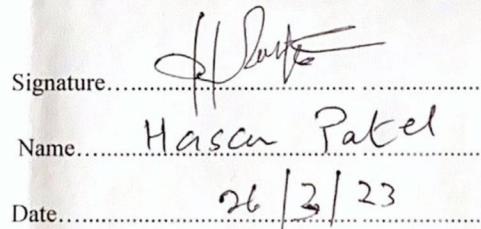 Signature..........
Name.....Hasan Patel..........
Date..........26/3/23..........